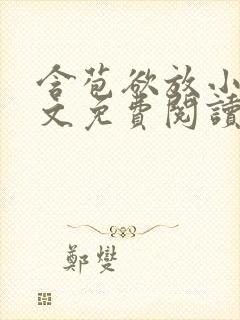 含苞欲放小
文免費閱讀
鄭燮